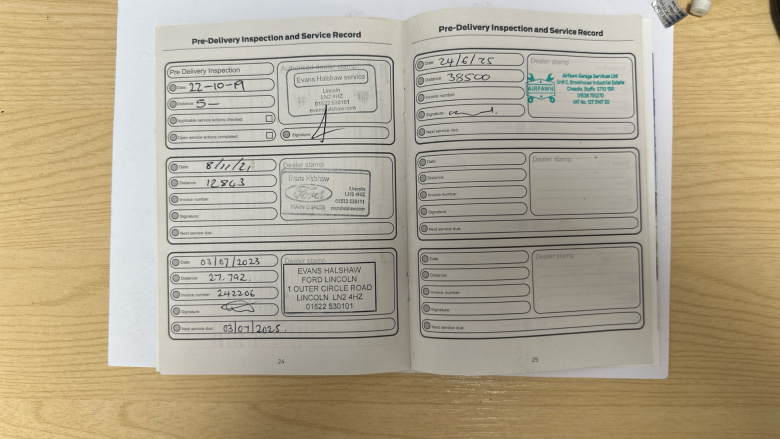 Pre-Delivery Inspection and Service Record
Pre Delivery Inspection
Date 22-10-19
Distance 5-
Applicable service actions checked
Open service actions completed
Authorised dealer stamp
Evans Halshaw service
Lincoln
LN2 4HZ
01522 530101
evanshalshaw.com
Signature
Date 8/11/21
Distance 12863
Invoice number
Signature
Next service due
Dealer stamp
Evans Halshaw
Ford
Lincoln
LN2 4HZ
01522 530101
evanshalshaw.com
Date 03/07/2023
Distance 27.792.
Invoice number 242206
Signature
Next service due 03/07/2025.
Dealer stamp
EVANS HALSHAW
FORD LINCOLN
1 OUTER CIRCLE ROAD
LINCOLN LN2 4HZ
01522 530101
24
Pre-Delivery Inspection and Service Record
Date 24/6/25
Distance 38500
Invoice number
Signature
Next service due
Dealer stamp
AIRFAWN
Airfawn Garage Services Ltd
Unit C, Brookhouse Industrial Estate
Cheadle, Staffs ST10 1SR
01538 756270
Date
Distance
Invoice number
Signature
Next service due
Dealer stamp
Date
Distance
Invoice number
Signature
Next service due
Dealer stamp
25